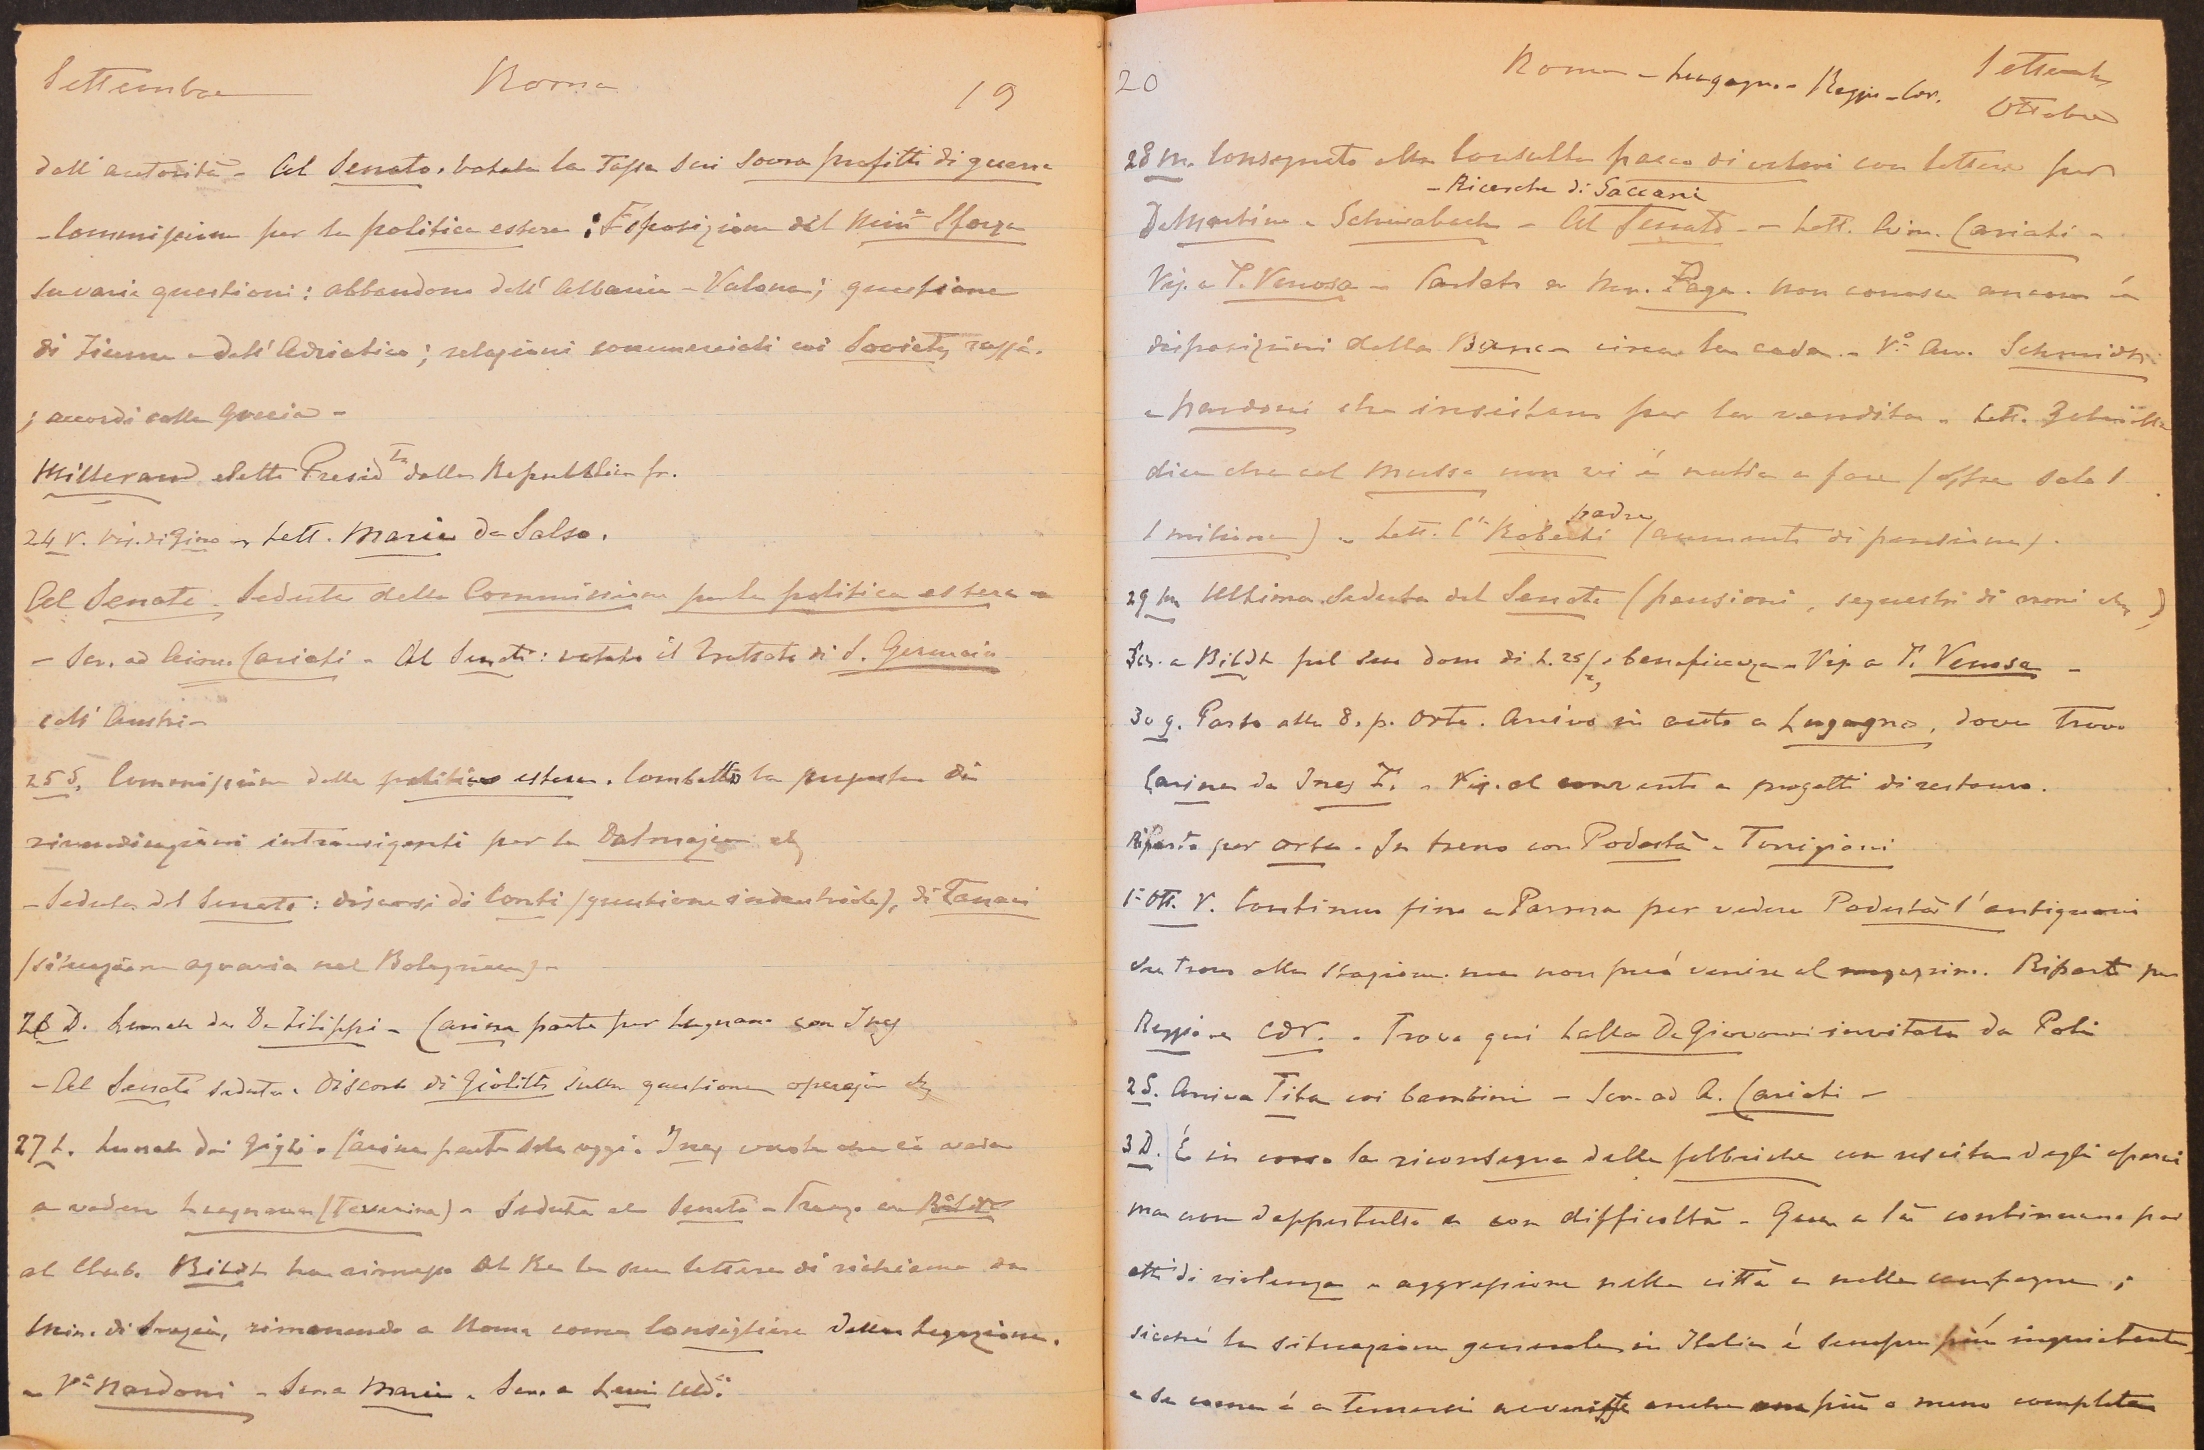 Settembre Roma 19
dall'autorità - Al Senato. votata la Tassa sui sovra profitti di guerra
- Commissione per la politica estera: Esposizione del Minro Sforza
su varie questioni: abbandono dell'Albania - Valona; questione
di Fiume e dell'Adriatico; relazioni commerciali coi Soviety russi.
; accordi colla Grecia -
Millerand eletto Presidte della Repubblica fr.
24 V. Vis. di Gino - Lett. Maria da Salso.
Al Senato. Seduta della Commissione per la politica estera -
- Scr. ad Aim. Cariati - Al Senato: votato il Trattato di S. Germain
coll'Austria
25 S. Commissione della politica estera. Combatto la proposta di
rivendicazioni intransigenti per la Dalmazia etc
- Seduta del Senato: discorsi di Conti (questione industriale), di Tanari
(situazione agraria nel Bolognese) -
26 D. Lunch da De Filippi - Carina parte per Lugnano con Ines
- Al Senato seduta. Discorso di Giolitti sulla questione operaja etc
27 L. Lunch dai Gigli. Carina parte solo oggi. Ines vuole che ci vada
a vedere Lugnano (Teverina) - Seduta al Senato - Pranzo con Bildt
al Club. Bildt ha rimesso al Re la sua lettera di richiamo da
Min. di Svezia, rimanendo a Roma come Consigliere della Legazione.
- Vo Nardoni - Scr. a Maria - Scr. a Luigi Ald.
20 Roma - Lugagna - Reggio - Cor. Settembre
Ottobre
28 M. Consegnato alla Consulta pacco di valori con lettera per
- Ricerche di Saccani
De Martino e Schwabach - Al Senato - - Lett. Aim. Cariati -
Vis. a T. Venosa - Parlato a Mr. Page. non conosce ancora le
disposizioni della Banca circa la casa. - Vo Avv. Schmidt
e Nardoni che insistono per la vendita. Lett.
dice che col Massa non vi è nulla a fare (offre solo 1
1 milione) - Lett. Roberti padre (aumento di pensione).
29 M Ultima seduta del Senato (pensioni, sequestri di etc)
Scr. a Bildt pel suo dono di L. 25/m beneficenza - Vis. a T. Venosa -
30 g. Parto alle 8. p. Orte. Arrivo in auto a Lugagno, dove trovo
Carina da Ines T. - Vis. al convento e progetti di restauro.
Riparto per Orte. In treno con Podestà e Torrigiani
1o Ott. V. Continuo fino a Parma per vedere Podestà l'antiquario
che trovo alla Stazione. ma non può venire al magazzino. Riparto per
Reggio e Cor. - Trovo qui Lalla De Giovanni invitata da Poli
2 S. Arriva Tita coi bambini - Scr. ad A. Cariati -
3 D. È in corso la riconsegna delle fabbriche con uscita degli operai
ma non dappertutto e con difficoltà - Qua e là continuano pur
atti di violenza e aggressione nella città e nella campagna;
sicché la situazione generale in Italia è sempre più inquietante,
e se come è a temersi avvenisse anche una più o meno completa